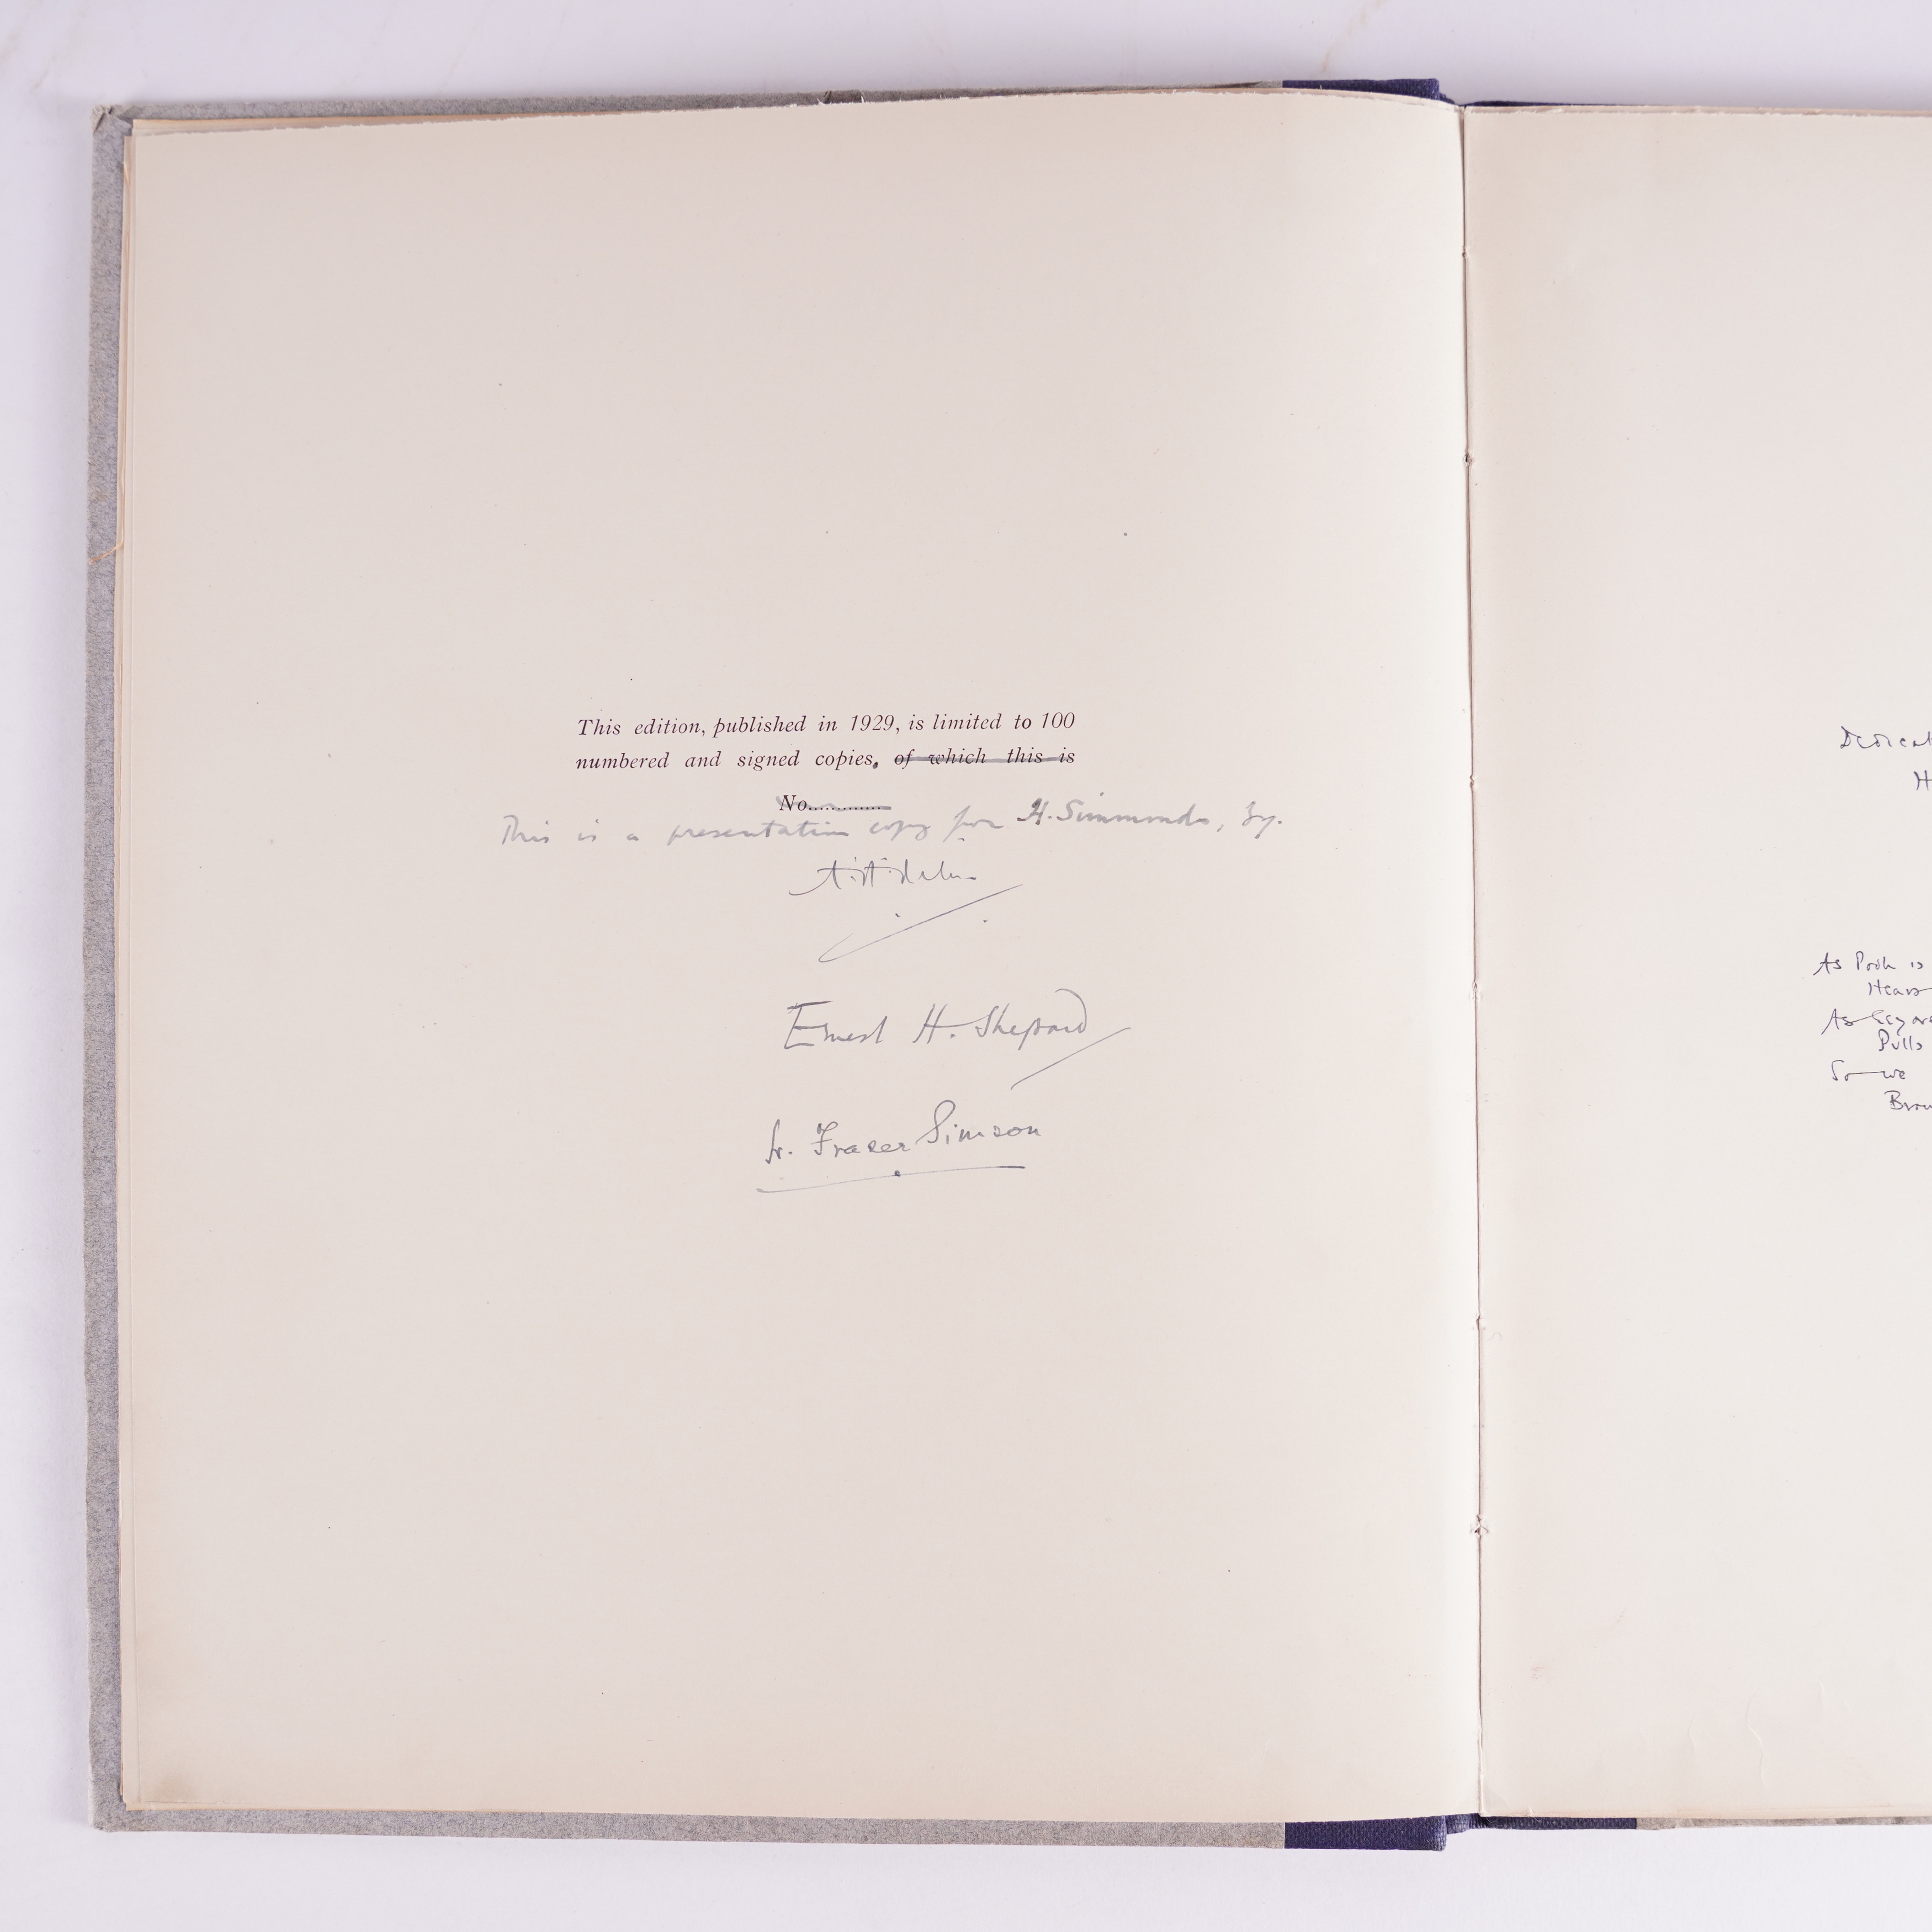 This edition, published in 1929, is limited to 100
numbered and signed copies, of which this is
No.............
This is a presentation copy for H. Simmonds, by.
A. A. Milne
Ernest H. Shepard
H. Fraser Simson
H
As Pooh is
As
Pulls
So we